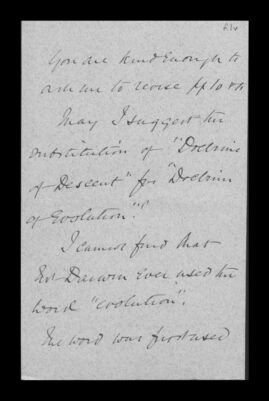 You are kind enough to
ask me to revise pp 10
May I suggest the
substitution of "Doctrine
of Descent" for "Doctrine
of Evolution"?
I cannot find that
Er Darwin ever used the
word "evolution".
The word was first used